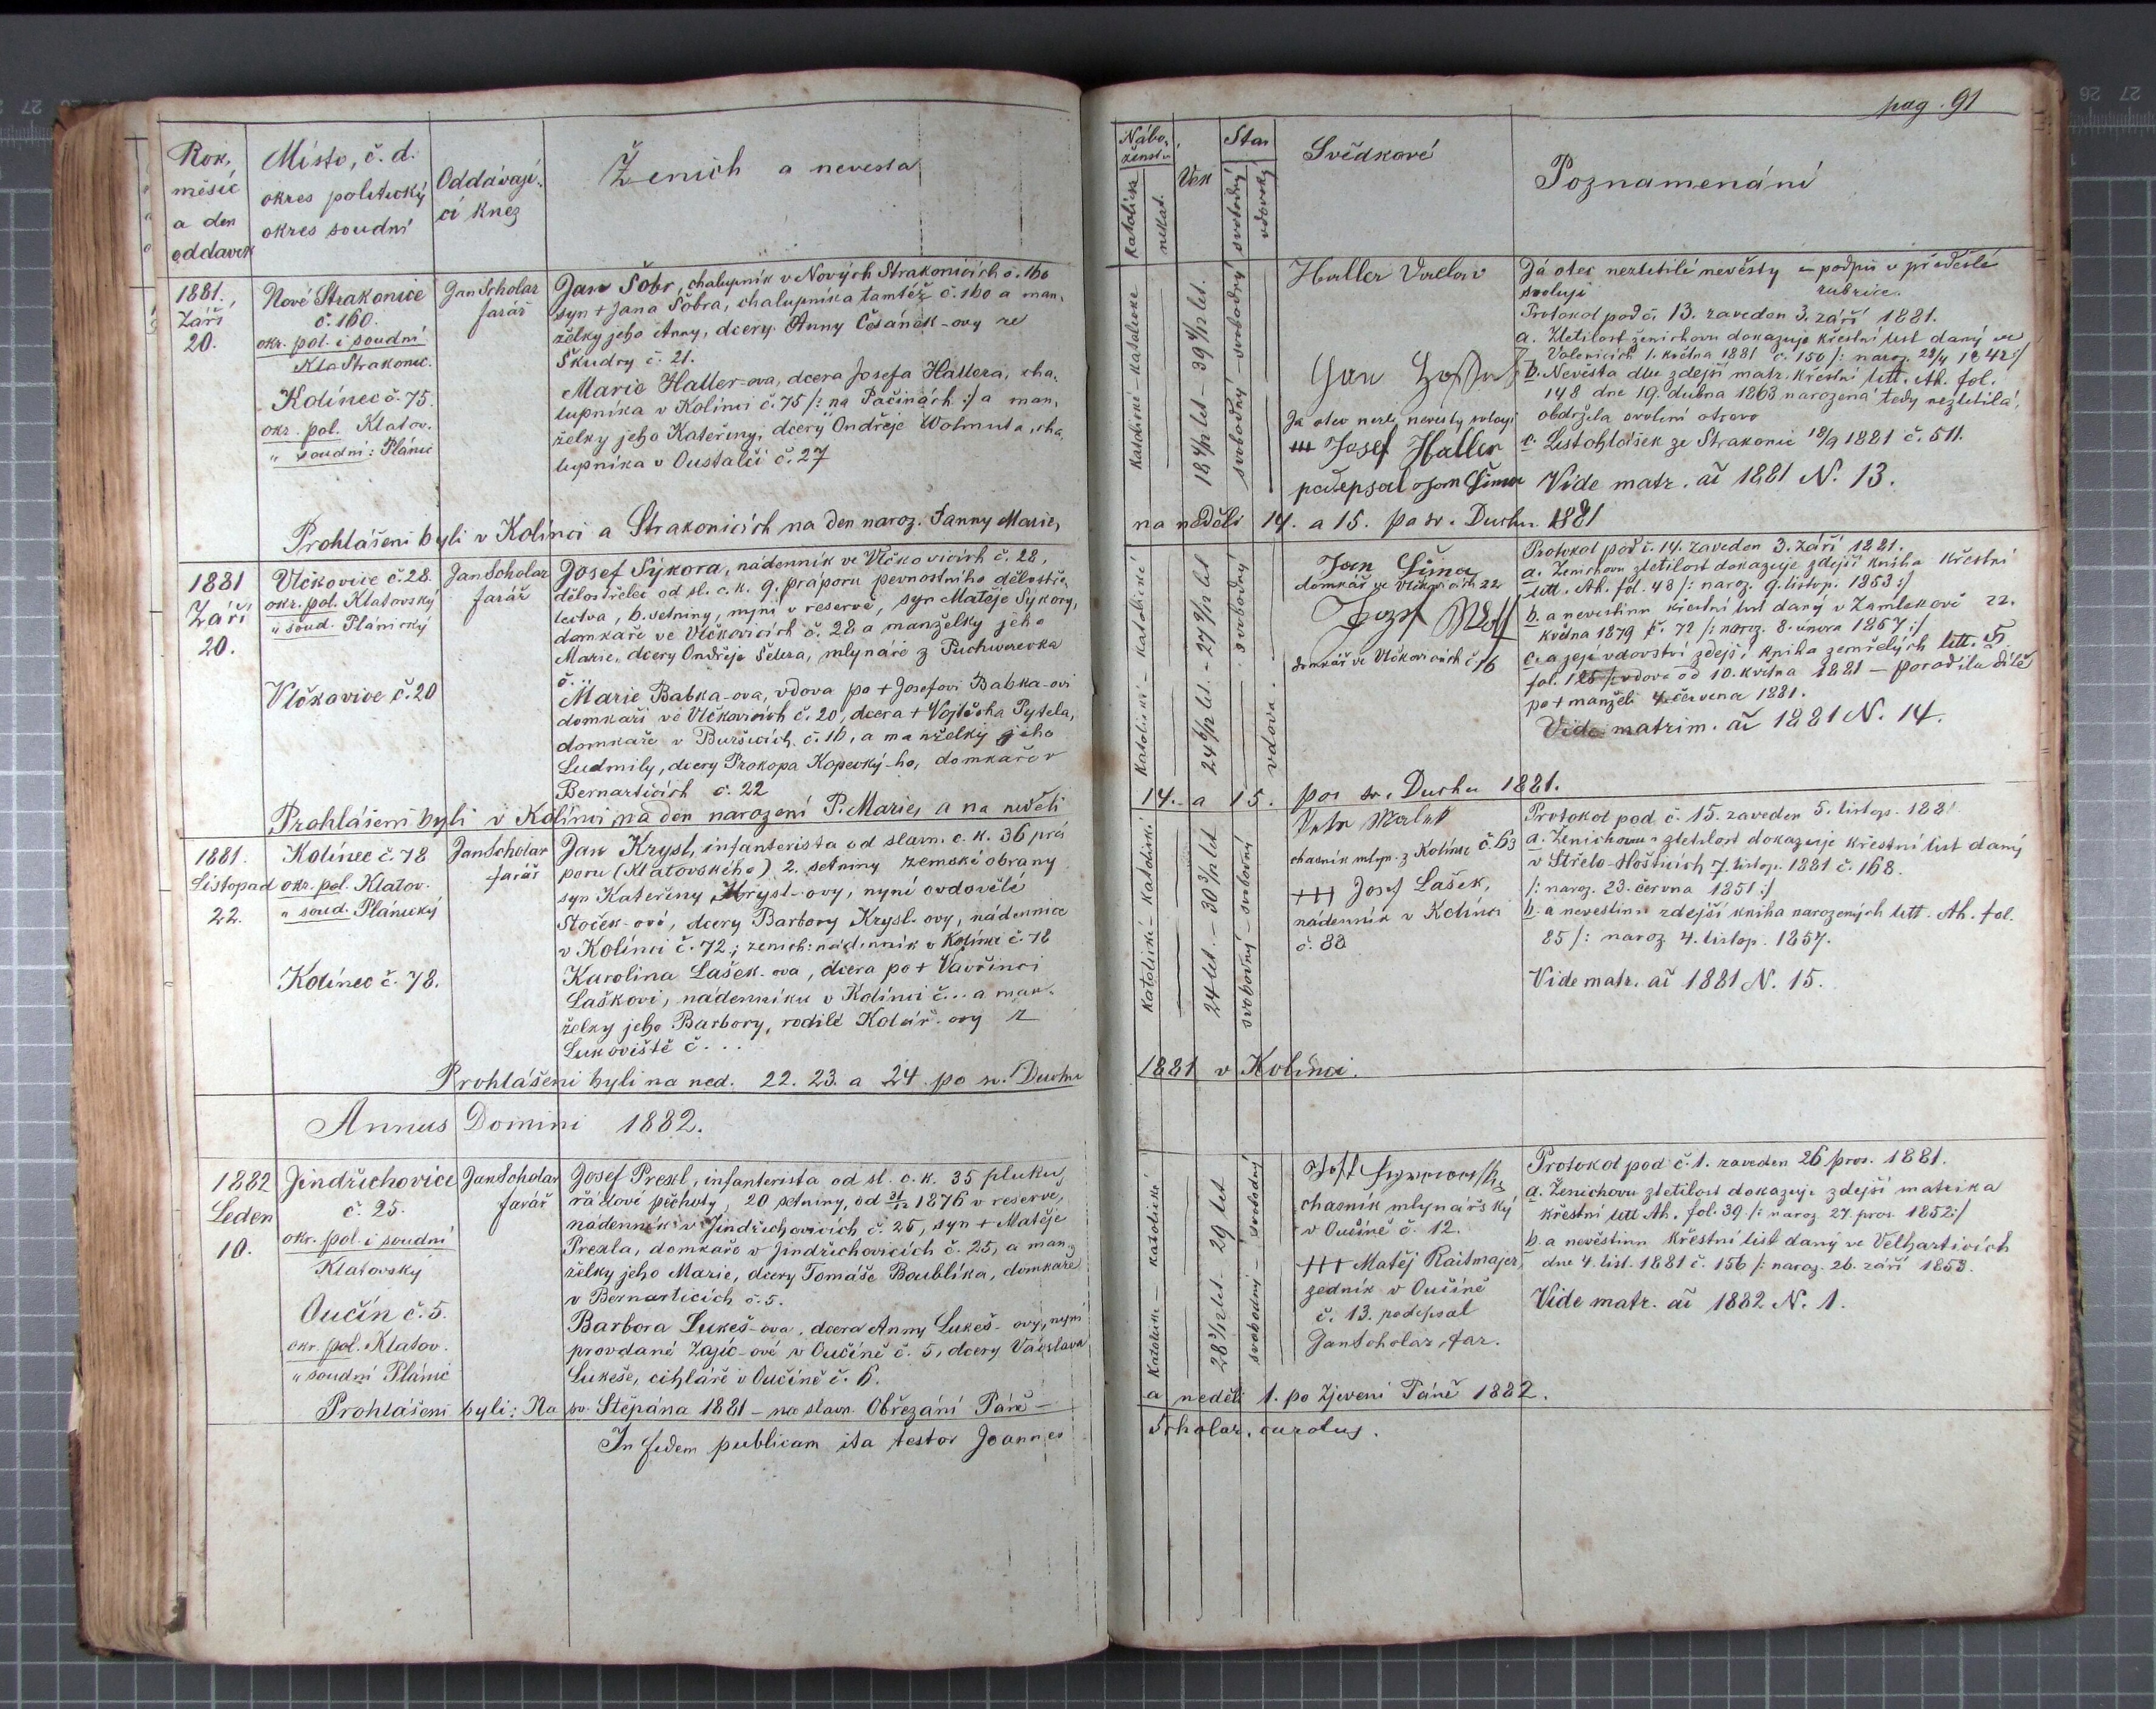 pag. 91
Rok,
měsíc
a den
oddavek
Místo, č. d.
okres politický
okres soudní
Oddávají-
cí kněz
Ženich a nevesta
1881.,
Září
20.
Nové Strakonice
č. 160.
okr. pol. i soudní
Strakonic.
Kolínec č. 75.
okr. pol. Klatov.
" soudní: Plánic
Jan Scholar
farář
Jan Šobr, chalupník v Nových Strakonicích č. 160
syn + Jana Šobra, chalupníka tamtéž č. 160 a man-
želky jeho Anny, dcery Anny Česánek-ovy ze
Škudry č. 21.
Marie Haller-ova, dcera Josefa Hallera, cha-
lupníka v Kolínci č. 75 /: na Pačinách :/ a man-
želky jeho Kateřiny, dcery Ondřeje Wolmuta, cha-
lupníka v Oustalči č. 27
Prohlášeni byli v Kolínci a Strakonicích na den naroz. Panny Marie,
1881
Září
20.
Vlčkovice č. 28.
okr. pol. Klatovský
" soud. Plánický
Vlčkovice č. 20
Jan Scholar
farář
Josef Sýkora, nádenník ve Vlčkovicích č. 28,
dělostřelec od sl. c. k. 9. práporu pevnostního dělostře-
lectva, 6. setniny, nyní v reservě, syn Matěje Sýkory,
domkaře ve Vlčkovicích č. 28 a manželky jeho
Marie, dcery Ondřeje mlynáře z
č...
Marie Babka-ova, vdova po + Josefovi Babka-ovi
domkaři ve Vlčkovicích č. 20, dcera + Vojtěcha Pytela,
domkaře v Buršicích č. 16, a manželky jeho
Ludmily, dcery Prokopa Kopecký-ho, domkaře v
Bernarticích č. 22
Prohlášeni byli v Kolínci na den narození P. Marie, a na neděli
1881.
Listopad
22.
Kolínec č. 78
okr. pol. Klatov.
" soud. Plánický
Kolínec č. 78.
Jan Scholar
farář
Jan Krysl, infanterista od slavn. c. k. 36 prá
poru (Klatovského) 2. setniny zemské obrany
syn Kateřiny Krysl-ovy, nyní ovdovělé
Stoček-ové, dcery Barbory Krysl-ovy, nádennice
v Kolínci č. 72; ženich: nádenník v Kolínci č. 78
Karolina Lašek-ova, dcera po + Vavřinci
Laškovi, nádenníku v Kolínci č... a man-
želky jeho Barbory, rodilé Kolář-ovy z
Lukoviště č...
Prohlášeni byli na ned. 22. 23. a 24. po sv. Duchu
Annus Domini 1882.
1882
Leden
10.
Jindřichovice
č. 25.
okr. pol. i soudní
Klatovský
Oučín č. 5.
okr. pol. Klatov.
" soudní Plánic
Jan Scholar
farář
Josef Prexl, infanterista od sl. c. k. 35 pluku
řadové pěchoty, 20 setniny, od 31/12 1876 v reservě,
nádenník v Jindřichovicích č. 25, syn + Matěje
Prexla, domkaře v Jindřichovicích č. 25, a man-
želky jeho Marie, dcery Tomáše Boublíka, domkaře
v Bernarticích č. 5.
Barbora Lukeš-ova, dcera Anny Lukeš-ovy, nyní
provdané Zajíc-ové v Oučíně č. 5, dcery Václava
Lukeše, cihláře v Oučíně č. 6.
Prohlášeni byli: Na sv. Štěpána 1881 - na slavn. Obřezání Páně -
In fidem publicam ita testor Joannes
Nábo-
ženství
katolické
nekat.
Věk
Stav
svobodný
vdovský
Svědkové
Poznamenání
katolické - katolické
18 4/12 let - 39 4/12 let.
svobodný - svobodný
Haller Václav
Jan
Já otec nezl. nevěsty svoluji
+++ Josef Haller
podepsal Jan Šima
Já otec nezletilé nevěsty - podpis v předešlé
svoluji rubrice.
Protokol pod č. 13. zaveden 3. září 1881.
a. Zletilost ženichovu dokazuje křestní list daný ve
Volenicích 1. května 1881 č. 150 /: naroz. 1842 :/
b. Nevěsta dle zdejší matr. křestní litt. Ah. fol.
148 dne 19. dubna 1863 narozená tedy nezletilá,
obdržela svolení otcovo
c. List ohlášek ze Strakonic 18/9 1881 č. 511.
Vide matr. ai 1881 N. 13.
na neděli 14. a 15. po sv. Duchu 1881
katolické - katolické
24 6/12 let. - 27 9/12 let
svobodný
vdova.
Jan Šima
domkář ve Vlčkovicích 22
Jozef
domkář ve Vlčkovicích č. 16
Protokol pod č. 14. zaveden 3. září 1881.
a. Ženichovu zletilost dokazuje zdejší kniha křestní
litt. Ah. fol. 48 /: naroz. 9. listop. 1853 :/
b. a nevestinu křestní list daný v Zamlekově 22.
května 1879 č. 72 /: naroz. 8. února 1857 :/
c. a její vdovství zdejší kniha zemřelých litt.
fol. 125 /: vdova od 10. května 1881 - porodila dítě
po + manželi 4. června 1881.
Vide matrim. ai 1881 N. 14.
14. a 15. po sv. Duchu 1881.
katolické - katolické
24 let. - 30 3/12 let
svobodný - svobodný
chasník mlyn. z Kolínce č. 63
+++ Josef Lašek,
nádenník v Kolínci
č. 83
Protokol pod č. 15. zaveden 5. listop. 1881.
a. Ženichovu zletilost dokazuje křestní list daný
v Střelo-Hošticích 7. listop. 1881 č. 168.
/: naroz. 23. června 1851 :/
b. a nevestinu zdejší kniha narozených litt. Ah. fol.
85 /: naroz. 4. listop. 1857.
Vide matr. ai 1881 N. 15.
1881 v Kolínci.
katolické - katolické
28 3/12 let - 29 let
svobodný - svobodný
chasník mlynářský
v Oučíně č. 12.
+++ Matěj Raitmajer,
zedník v Oučíně
č. 13. podepsal
Jan Scholar, far.
Protokol pod č. 1. zaveden 26 pros. 1881.
a. Ženichovu zletilost dokazuje zdejší matrika
křestní litt Ah. fol. 39 /: naroz 27. pros. 1852 :/
b. a nevěstinu křestní list daný ve Velharticích
dne 4. list. 1881 č. 156 /: naroz. 26. září 1853.
Vide matr. ai 1882 N. 1.
a neděli 1. po Zjevení Páně 1882.
Scholar, curatus.